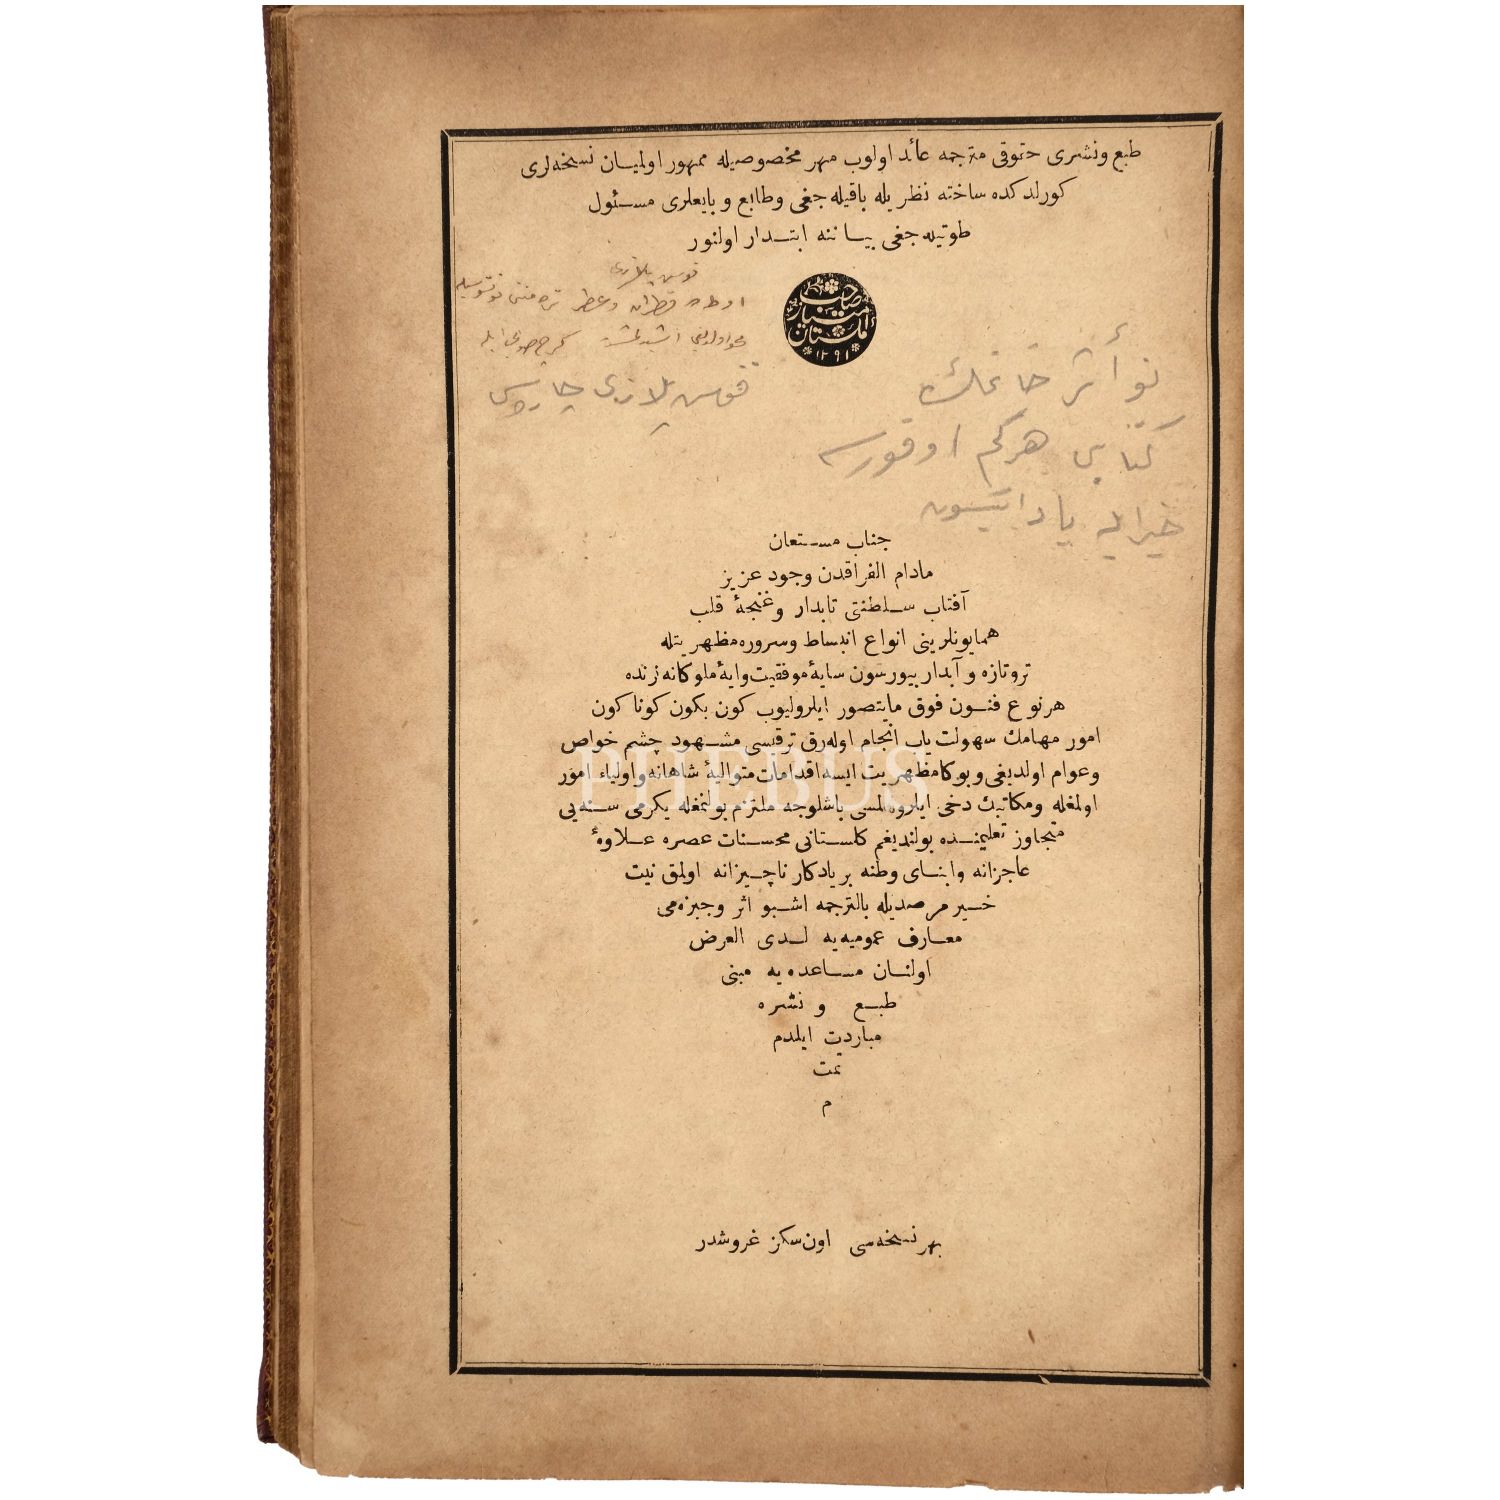 طبع ونشری حقوقی مترجمه عائد اولوب مهر مخصوصیله ممهور اولمیان نسخه‌لری
کورلدکده ساخته نظریله باقیله‌جغی وطابع و بایعلری مسئول
طوتیله‌جغی بیاننه ابتدار اولنور
صاحب
امتیاز
کلستان
۱۲۹۱
قوس پلازری
قوس پلازری
کتابی هرکم اوقورسه
خیرایله یاد ایتسون
جناب مستعان
مادام الفراقدن وجود عزیز
آفتاب سلطنتی تابدار وغنجهٔ قلب
همایونلرینی انواع انبساط وسروره مظهریتله
تروتازه و آبدار بیورسون سایهٔ موفقیت‌وایهٔ ملوکانه‌زنده
هرنوع فنون فوق مایتصور ایلرولیوب کون بکون کوناکون
امور مهامك سهولت‌یاب انجام اوله‌رق ترقیسی مشهود چشم خواص
وعوام اولدیغی وبوکا مظهریت ایسه اقدامات متوالیهٔ شاهانه واولیاء امور
اولمغله ومکاتبك دخی ایلرولمسی باشلوجه ملتزم بولنمغله یکرمی سنه‌یی
متجاوز تعلیمنده بولندیغم کلستانی محسنات عصره علاوهٔ
عاجزانه وابنای وطنه بریادکار ناچیزانه اولمق نیت
خیر مرصدیله بالترجمه اشبو اثر وجیزه‌می
معارف عمومیه‌یه لدی العرض
اولنان مساعده‌یه مبنی
طبع و نشره
مباردت ایلدم
تمت
م
بهر نسخه‌سی اون‌سکز غروشدر
PHEBUS